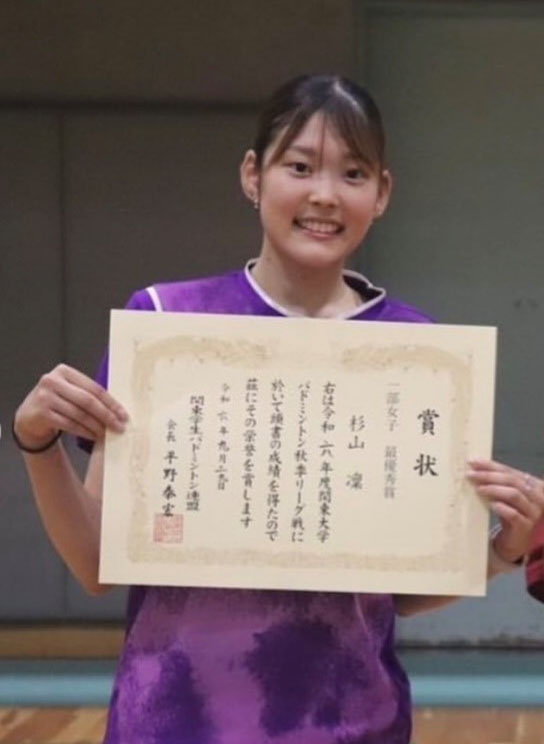 賞状
一部女子 最優秀賞
杉山 凜
右は令和六年度関東大学
バドミントン秋季リーグ戦に
於いて頭書の成績を得たので
茲にその栄誉を賞します
令和六年九月二九日
関東学生バドミントン連盟
会長 平野泰宏